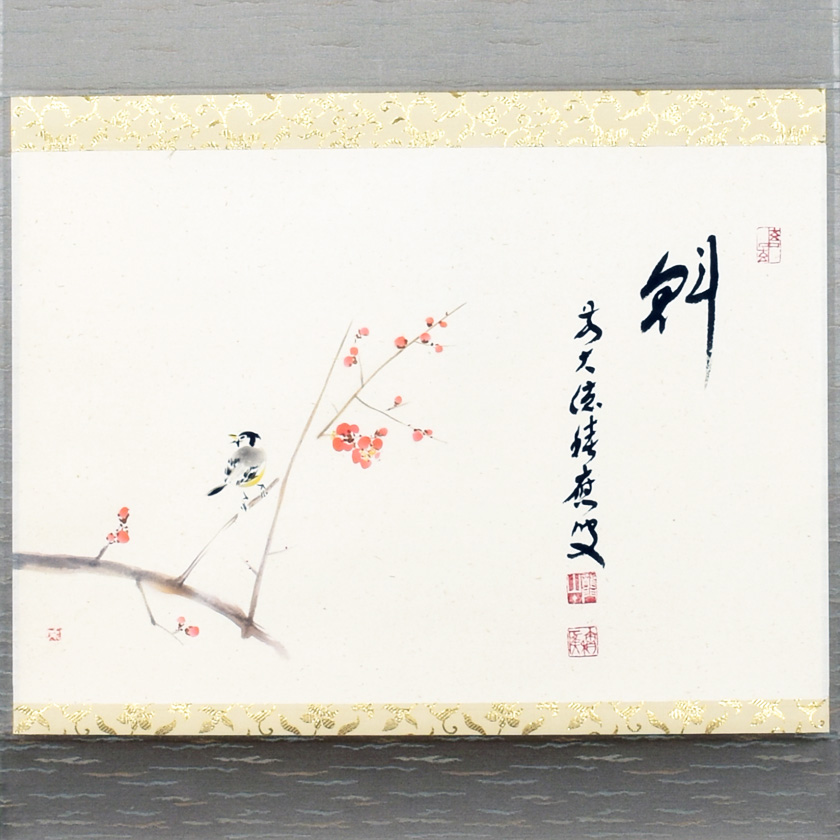 魁
前大徳積應叟